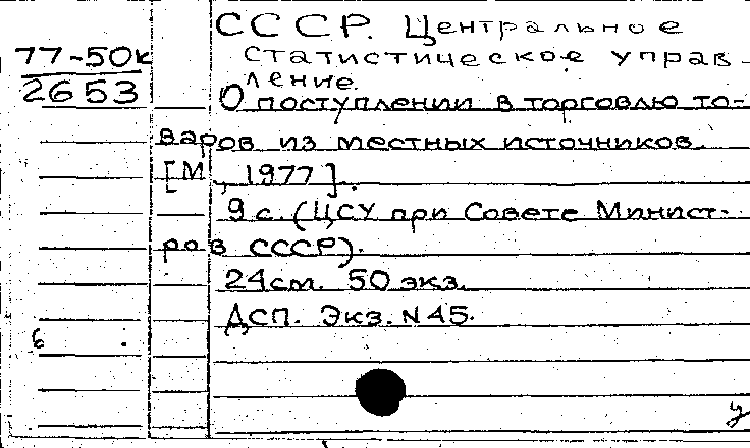 СССР. Центральное
77-50к
статистическое управ-
ление.
2653
О поступлении в торговлю то-
варов из местных источников.
[М., 1977].
9 с. (ЦСУ при Совете Минист-
ров СССР).
24 см. 50 экз.
ДСП. Экз. N 45.
б
у